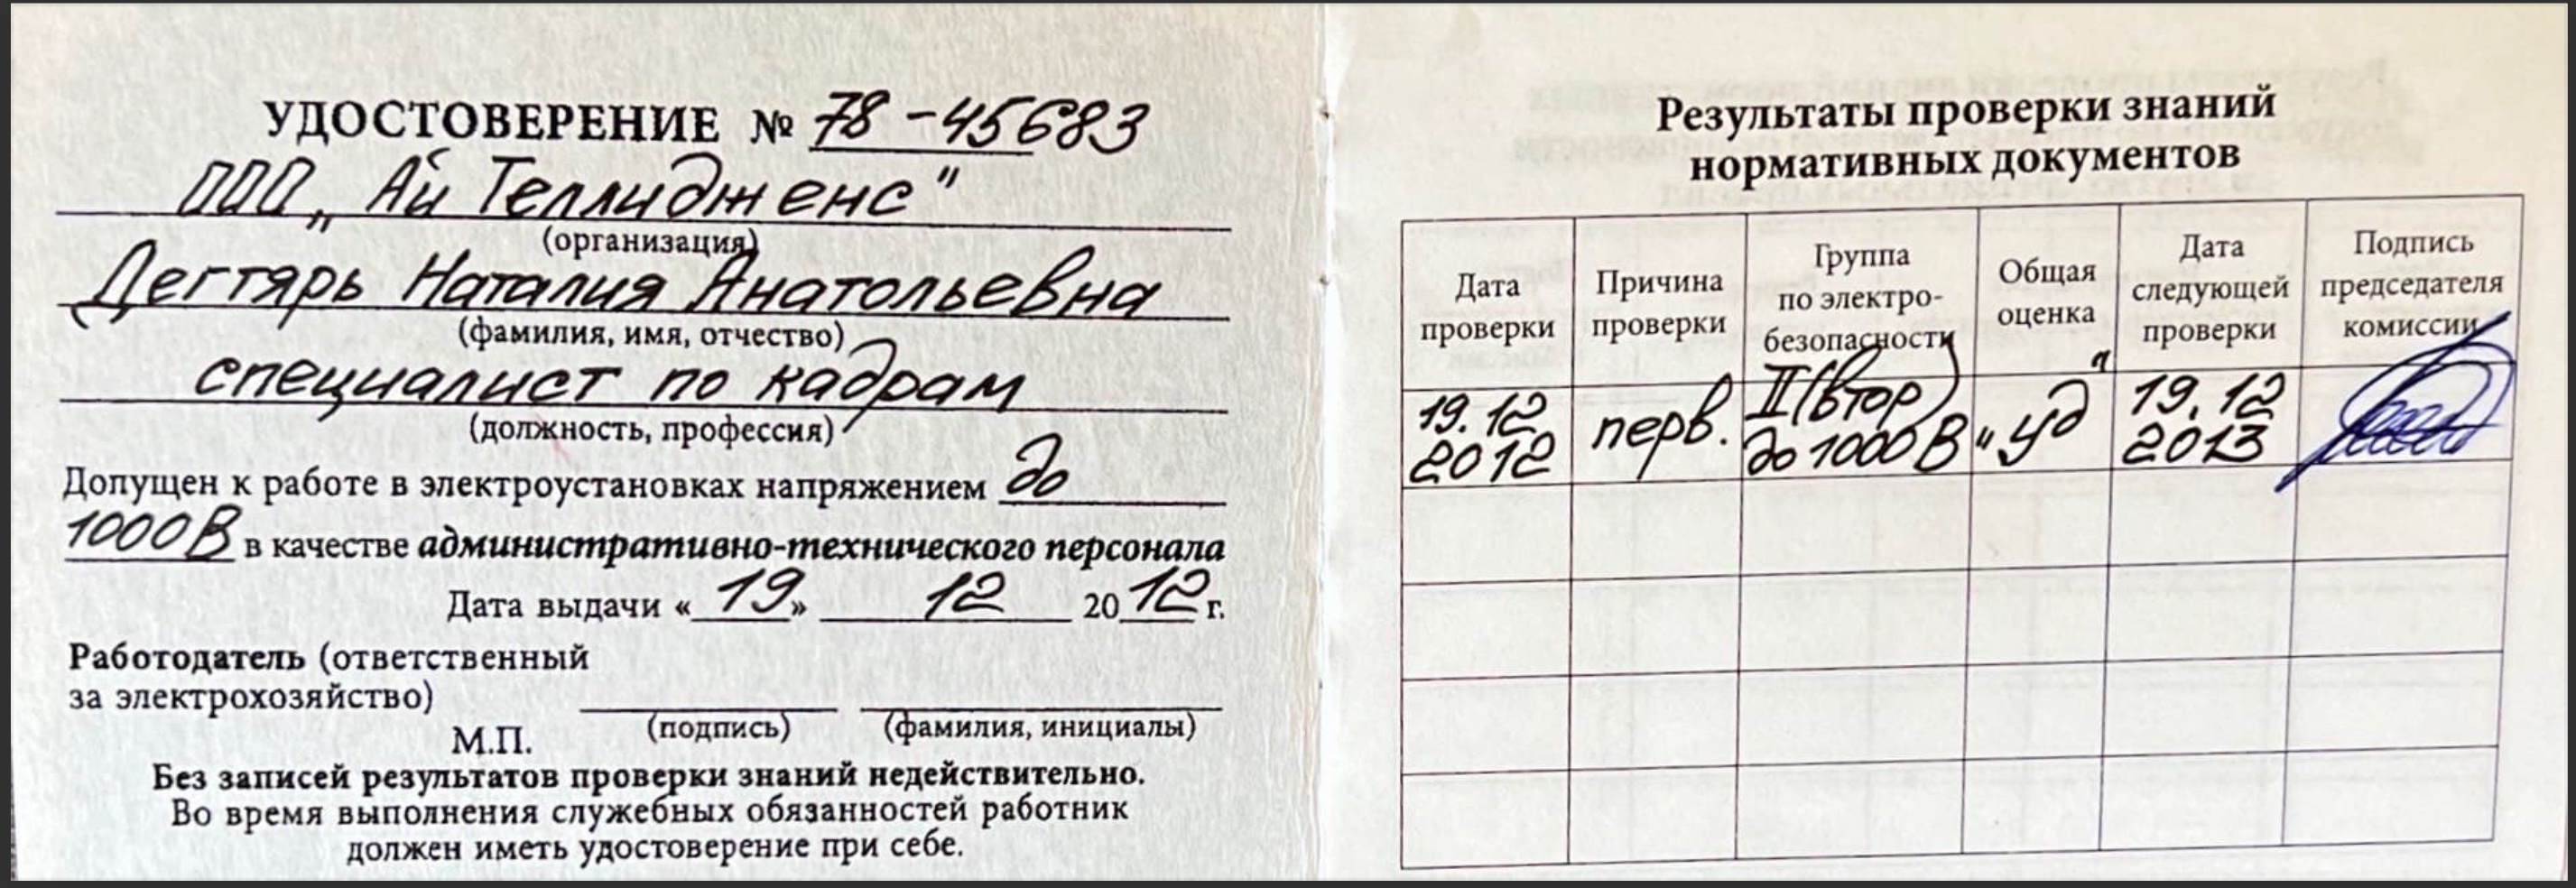 УДОСТОВЕРЕНИЕ № 78-45683
ООО „Ай Теллидженс"
(организация)
Дегтярь Наталия Анатольевна
(фамилия, имя, отчество)
специалист по кадрам
(должность, профессия)
Допущен к работе в электроустановках напряжением до
1000 В в качестве административно-технического персонала
Дата выдачи «19» 12 2012 г.
Работодатель (ответственный
за электрохозяйство)
(подпись) (фамилия, инициалы)
М.П.
Без записей результатов проверки знаний недействительно.
Во время выполнения служебных обязанностей работник
должен иметь удостоверение при себе.
Результаты проверки знаний
нормативных документов
Дата проверки Причина проверки Группа по электро-безопасности Общая оценка Дата следующей проверки Подпись председателя комиссии
19.12 2012 перв. II (втор) до 1000 В „уд" 19.12 2013